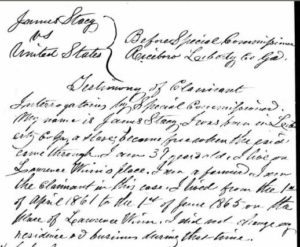 James Stacy
vs
United States
Before Special Commissioner
Liberty Co Ga
Testimony of Claimant
Interrogations by Special Commissioner.
My name is James Stacy, I was born in Lib
Co Ga, a slave, became free when the
came through. I am 39 years old. I live on
Lawrence Winn's place. I am a farmer. I am
the Claimant in this case. I lived from the 1st
of April 1861 to the 1st of June 1865 on the
place of Lawrence Winn. I did not change my
residence or business during that time.